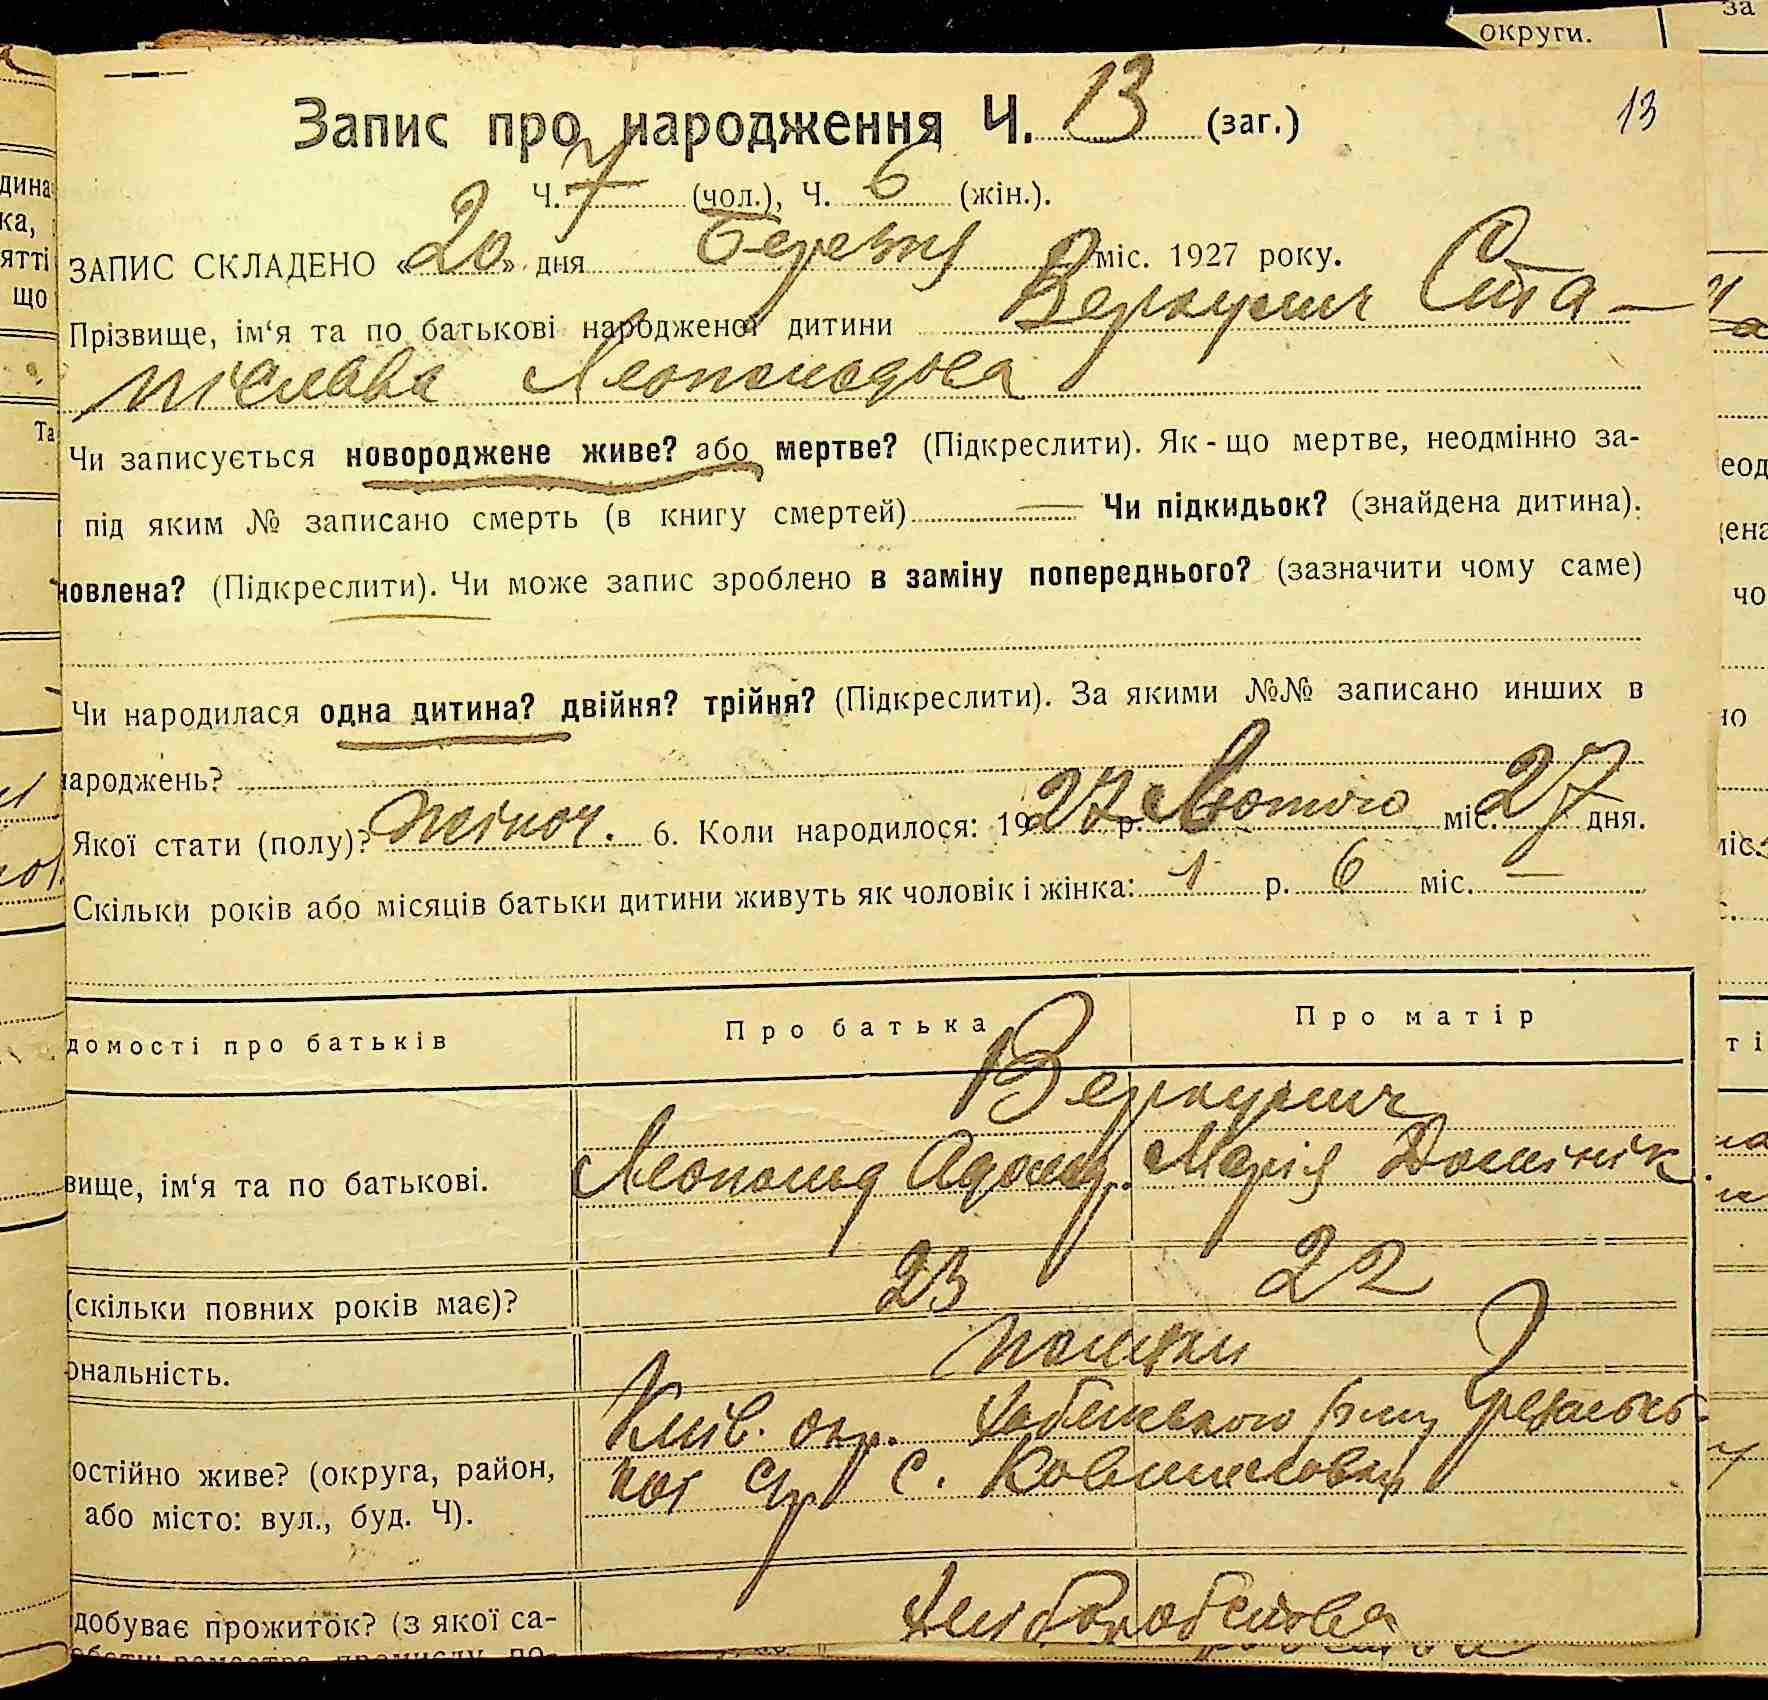 округи.
за
Запис про народження Ч. 13 (заг.)
13
Ч. 7 (чол.), Ч. 6 (жін.).
ЗАПИС СКЛАДЕНО «20» дня Березня міс. 1927 року.
Прізвище, ім‘я та по батькові народженої дитини Ста-
ніслава Леопольдова
Чи записується новороджене живе? або мертве? (Підкреслити). Як-що мертве, неодмінно за-
під яким № записано смерть (в книгу смертей) — Чи підкидьок? (знайдена дитина).
новлена? (Підкреслити). Чи може запис зроблено в заміну попереднього? (зазначити чому саме)
Чи народилася одна дитина? двійня? трійня? (Підкреслити). За якими №№ записано инших в
народжень?
Якої стати (полу)? жіноч. 6. Коли народилося: 1927 р. Лютого міс. 27 дня.
Скільки років або місяців батьки дитини живуть як чоловік і жінка: 1 р. 6 міс. —
домості про батьків Про батька Про матір
вище, ім‘я та по батькові. Леопольд Адольф. Марія Домінік
(скільки повних років має)? 23 22
ональність. поляки
Київ. окр. р-ну
остійно живе? (округа, район, с/р с.
або місто: вул., буд. Ч).
добуває прожиток? (з якої са- хліборобство